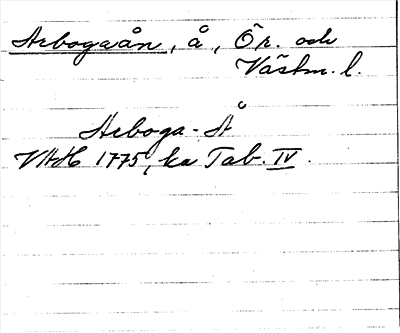 Arbogaån, å, Ör. och
Västm. l.
Arboga-Å
VAH 1775, ka Tab. IV.